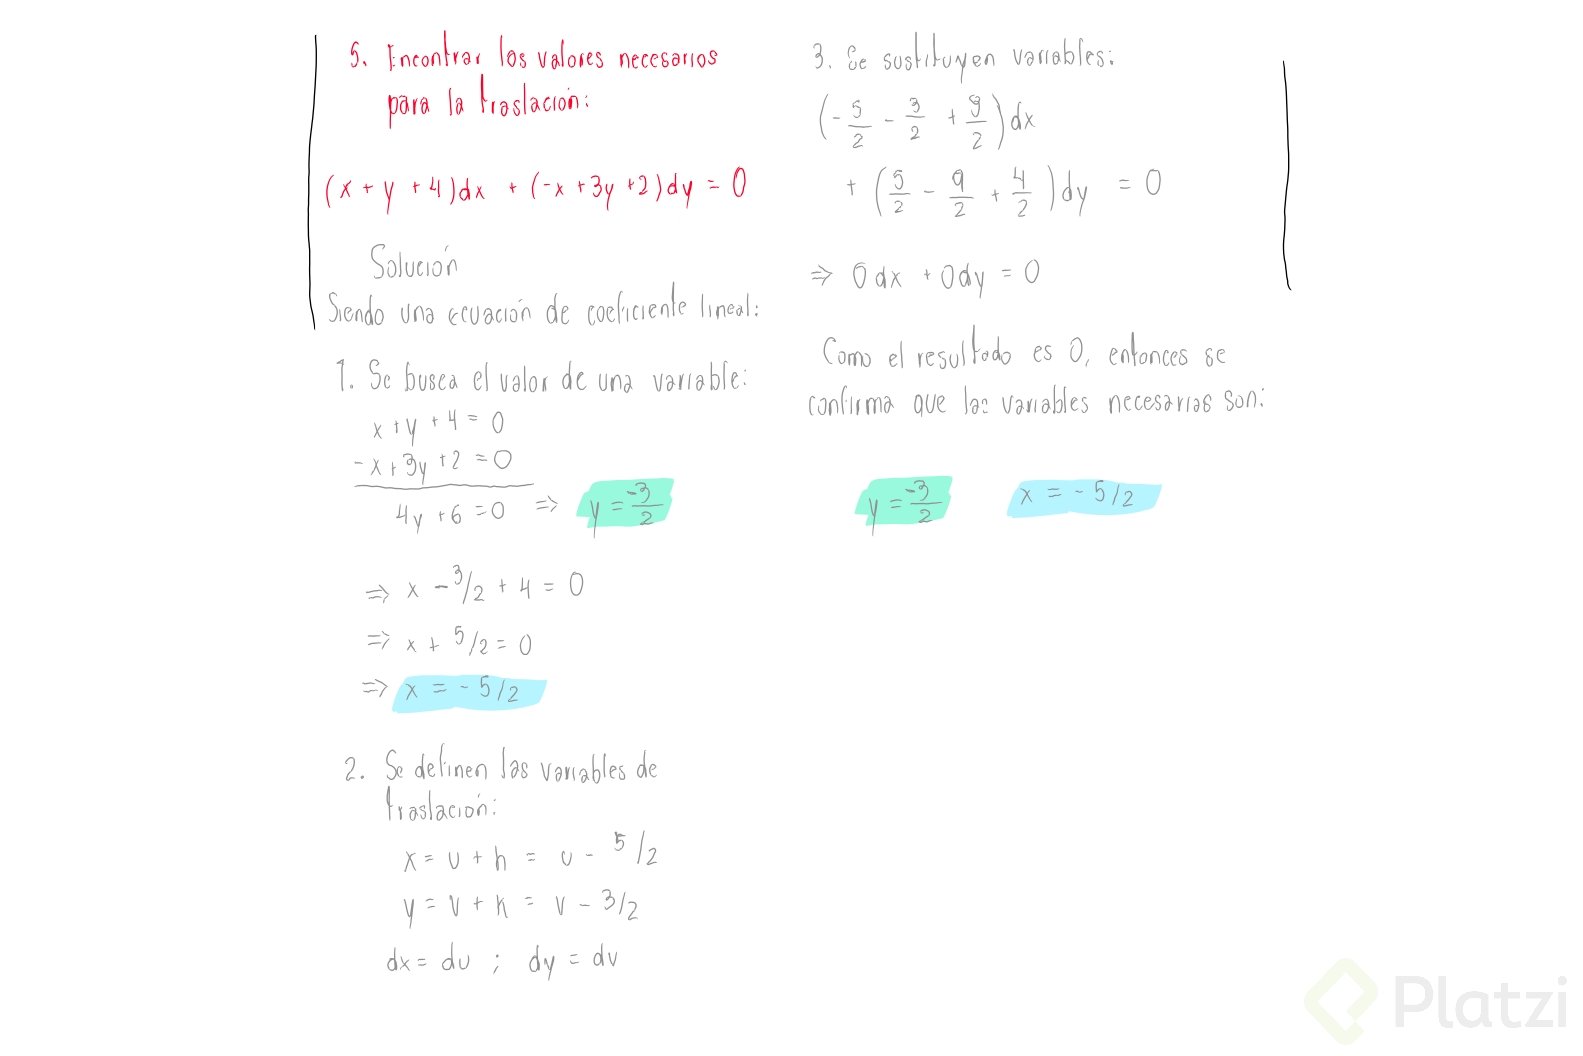 5. Encontrar los valores necesarios
para la traslación:
(x + y + 4)dx + (-x + 3y + 2)dy = 0
Solución
Siendo una ecuación de coeficiente lineal:
1. Se busca el valor de una variable:
x + y + 4 = 0
-x + 3y + 2 = 0
4y + 6 = 0 ⇒ y = -3/2
⇒ x - 3/2 + 4 = 0
⇒ x + 5/2 = 0
⇒ x = - 5/2
2. Se definen las variables de
traslación:
x = u + h = u - 5/2
y = v + k = v - 3/2
dx = du ; dy = dv
3. Se sustituyen variables:
(- 5/2 - 3/2 + 9/2) dx
+ (5/2 - 9/2 + 4/2) dy = 0
⇒ 0 dx + 0 dy = 0
Como el resultado es 0, entonces se
confirma que las variables necesarias son:
y = -3/2 x = - 5/2
Platzi